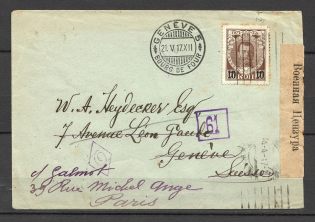 GENÈVE 5
21.V.17.XII
BOURG DE FOUR
10 КОП 10
Военная Цензура
W. A. Heydecker Esq
7 Avenue Léon Gaud
61
Genève
Suisse
c/ Galmot
39 Rue Michel Ange
Paris